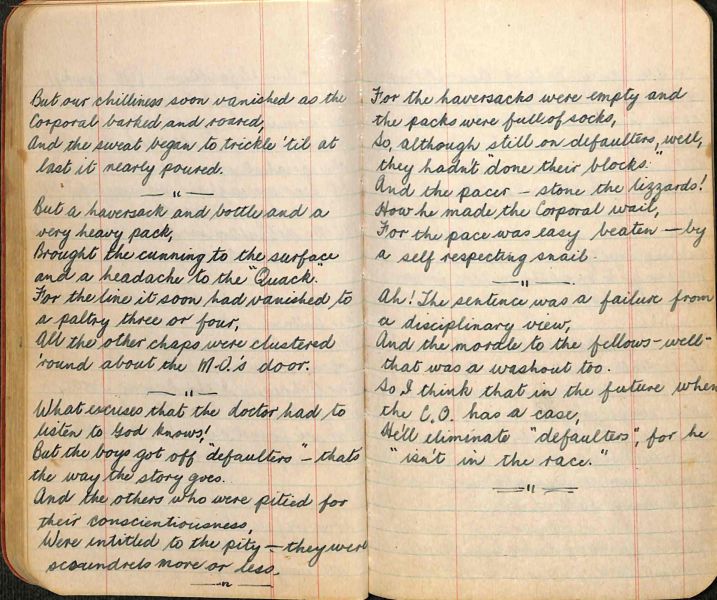 But our chilliness soon vanished as the
Corporal barked and roared,
And the sweat began to trickle 'til at
last it nearly poured.
But a haversack and bottle and a
very heavy pack,
Brought the cunning to the surface
and a headache to the "Quack."
For the line it soon had vanished to
a paltry three or four,
All the other chaps were clustered
'round about the M.O.'s door.
What excuses that the doctor had to
listen to God knows!
But the boys got off "defaulters" - thats
the way the story goes.
And the others who were pitied for
their conscientiousness,
Were intitled to the pity - they were
scoundrels more or less.
For the haversacks were empty and
the packs were full of socks,
So, although still on defaulters, well,
they hadn't "done their blocks."
And the pacer - stone the lizzards!
How he made the Corporal wail,
For the pace was easy beaten - by
a self respecting snail.
Ah! The sentence was a failure from
a disciplinary view,
And the morale to the fellows - well -
that was a washout too.
So I think that in the future when
the C.O. has a case,
He'll eliminate "defaulters", for he
"isn't in the race."